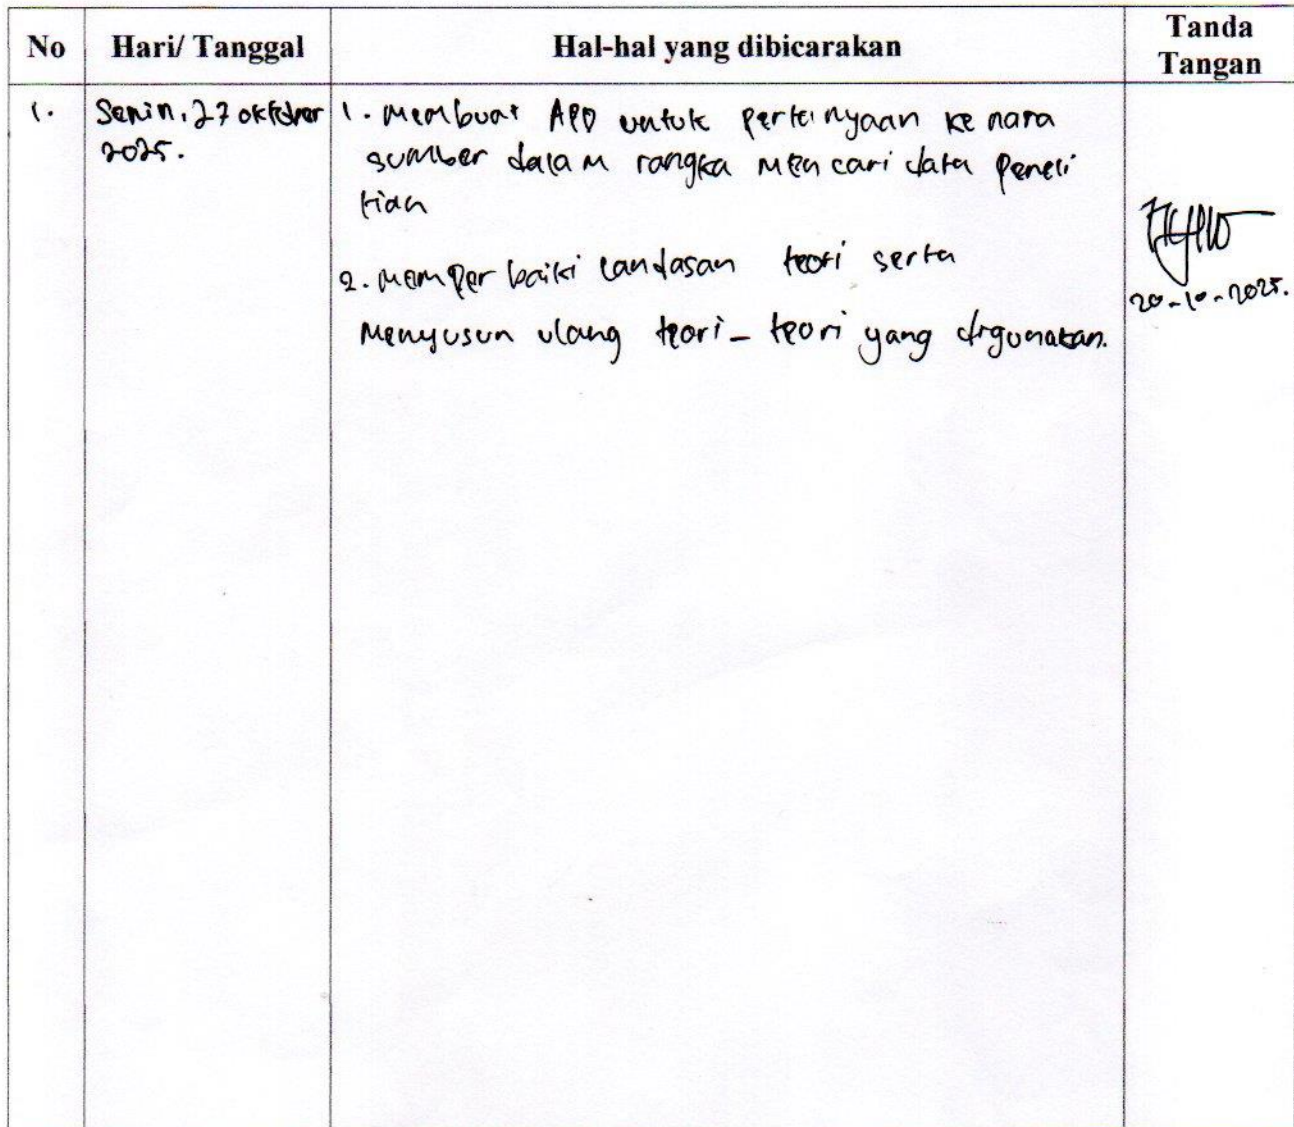 No Hari/ Tanggal Hal-hal yang dibicarakan Tanda Tangan
1. Senin, 27 oktober 2025.
1. Membuat APD untuk pertanyaan ke nara
sumber dalam rangka mencari data peneli
tian
2. Memperbaiki landasan teori serta
Menyusun ulang teori-teori yang digunakan.
20-10-2025.